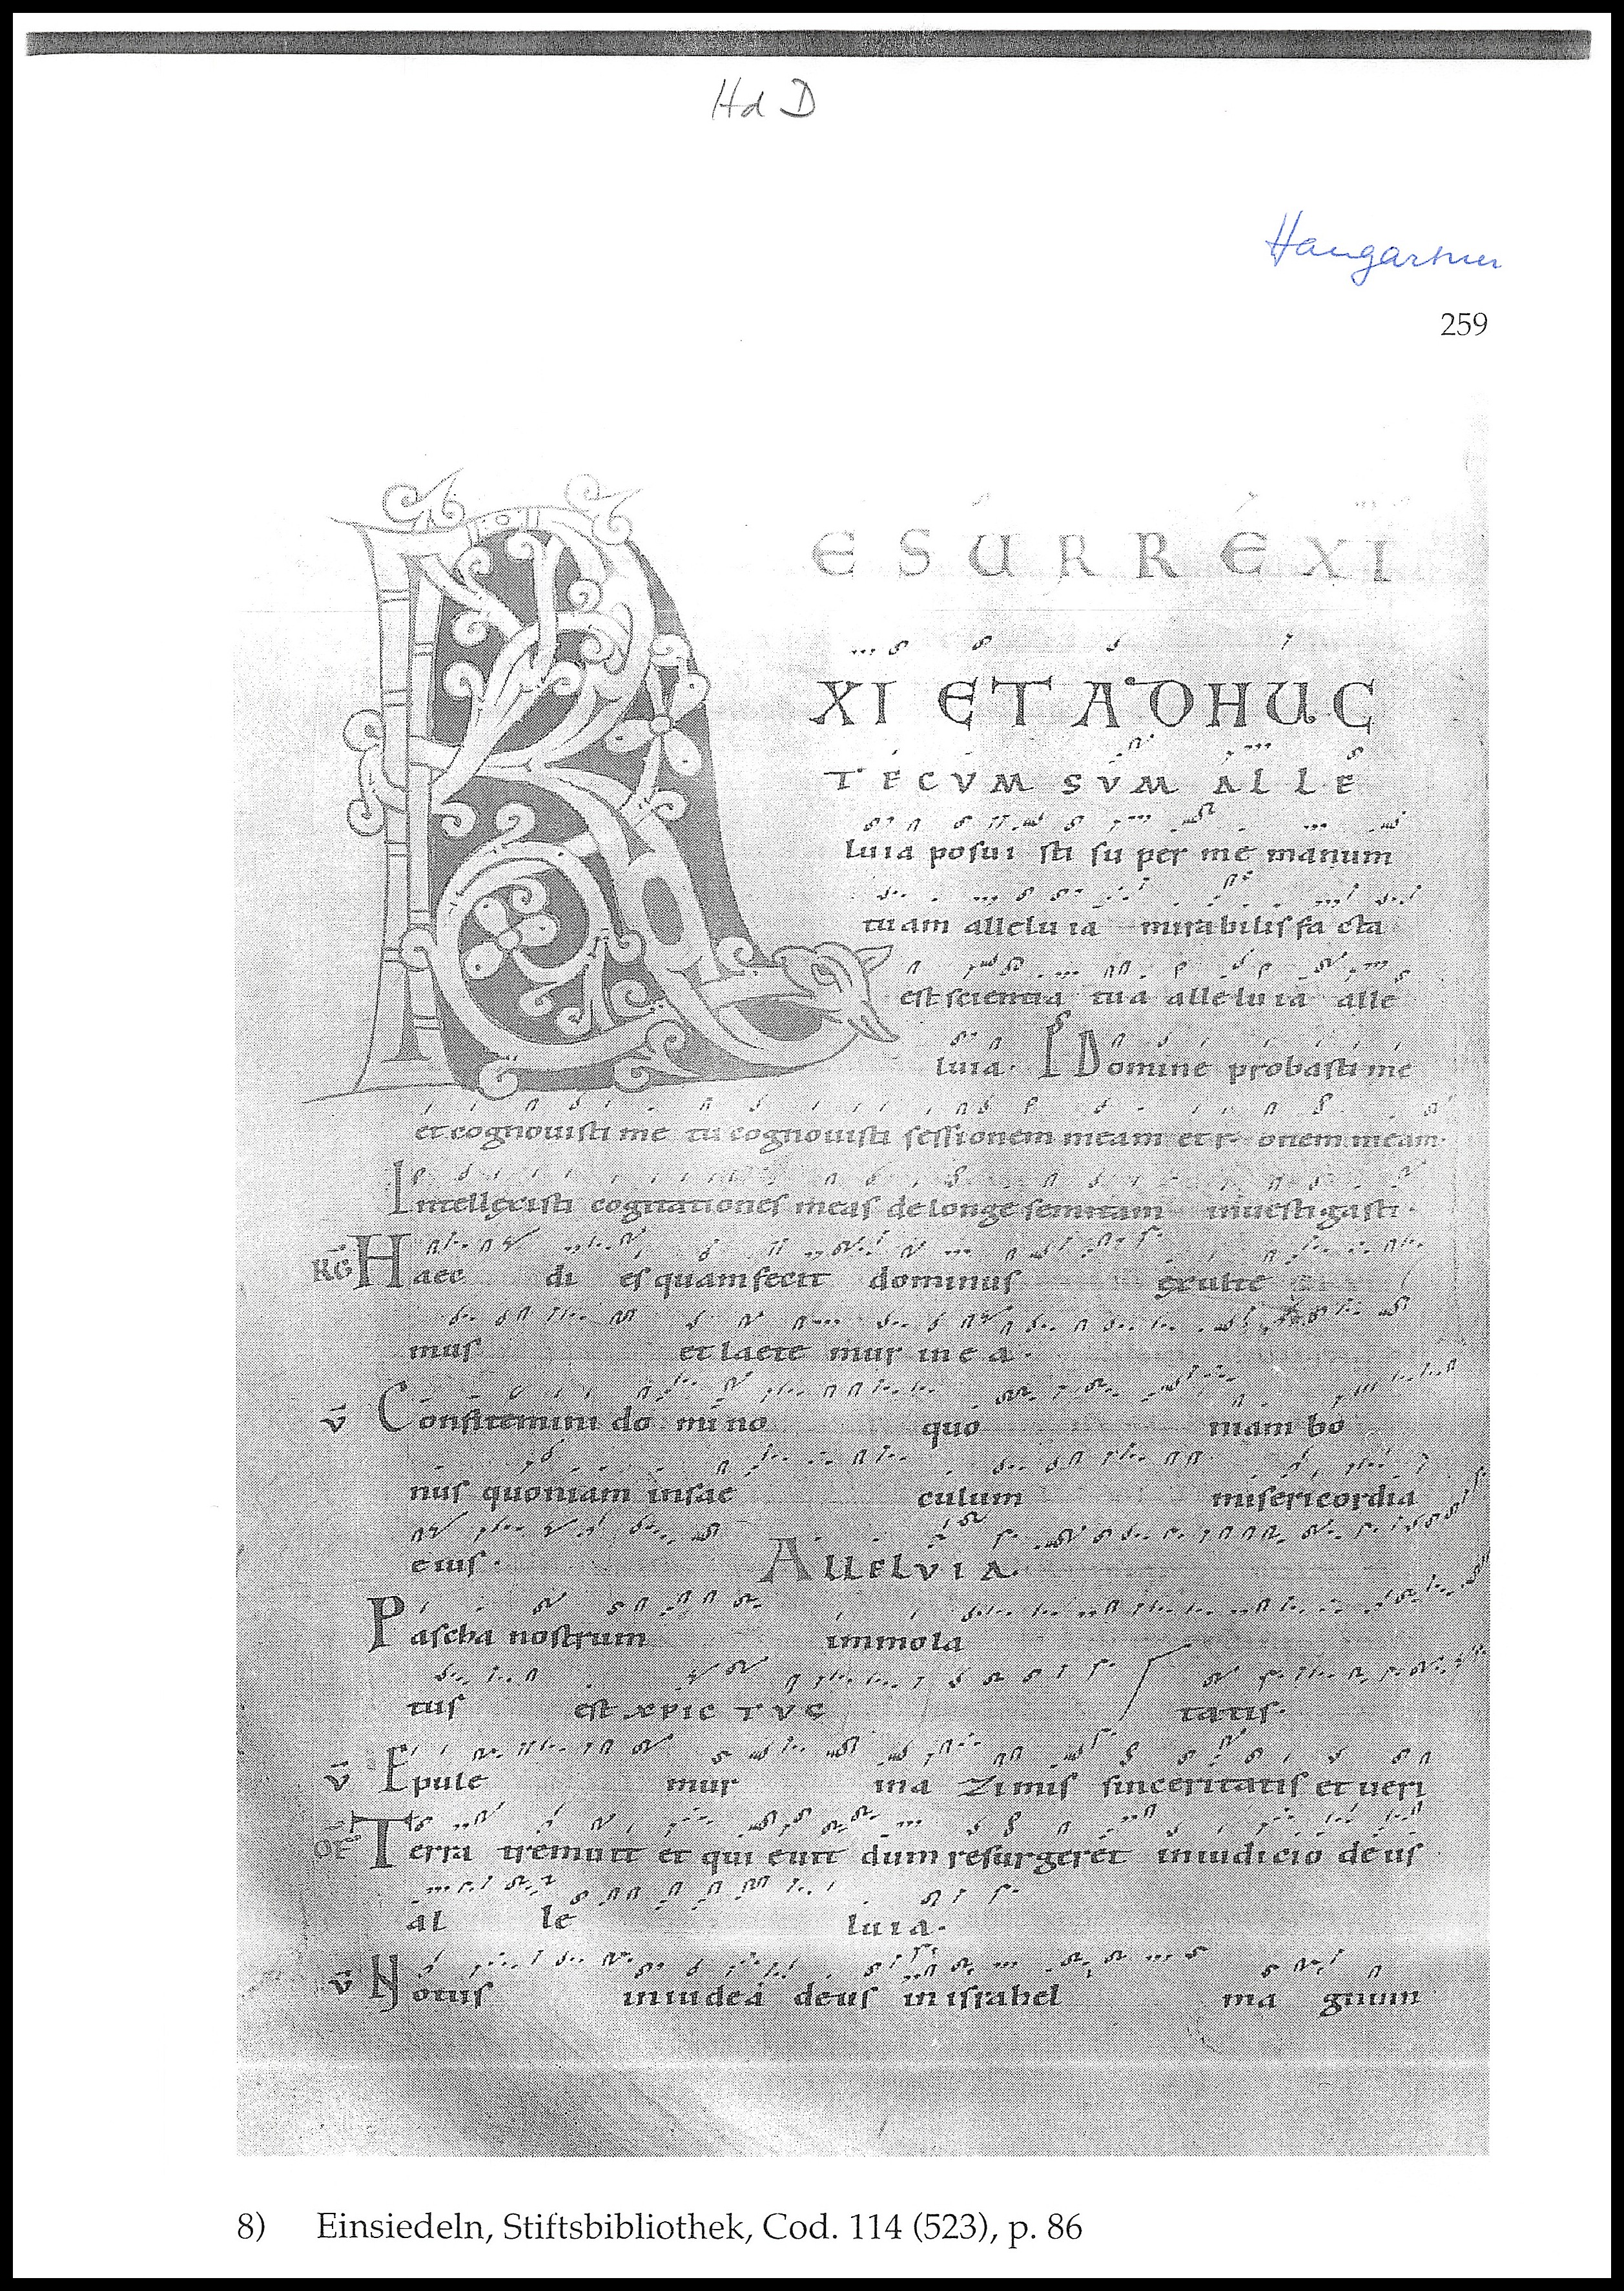 Hd D
Hangartner
259
ESURREXI
XI ET ADHUC
TECVM SVM ALLE
luia posui sti su per me manum
tuam allelu ia mirabilis fa cta
est scientia tua alle lu ia alle
luia. P Domine probasti me
et cognouisti me tu cognouisti sessionem meam et r onem meam.
Intellexisti cogitationes meas de longe semitam inuestigasti.
RG Haec di es quam fecit dominus exulte
mus et laete mur in e a.
V Confitemini do mi no quo niam bo
nus quoniam in sae culum misericordia
eius. ALLELVIA.
Pascha nostrum immola
tus est tatis.
V Epule mur in a zimis sinceritatis et ueri
OF Terra tremuit et qui euit dum resurgeret in iudicio deus
al le luia.
V Notus in iudea deus in israhel ma gnum
8) Einsiedeln, Stiftsbibliothek, Cod. 114 (523), p. 86